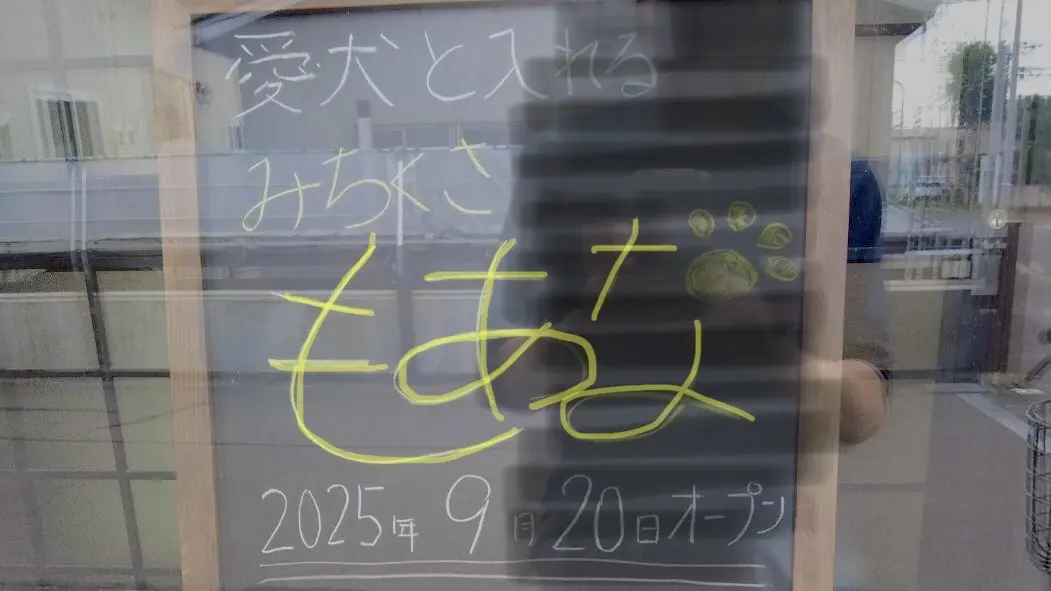 愛犬と入れる
みちくさ
もあな
2025年9月20日オープン